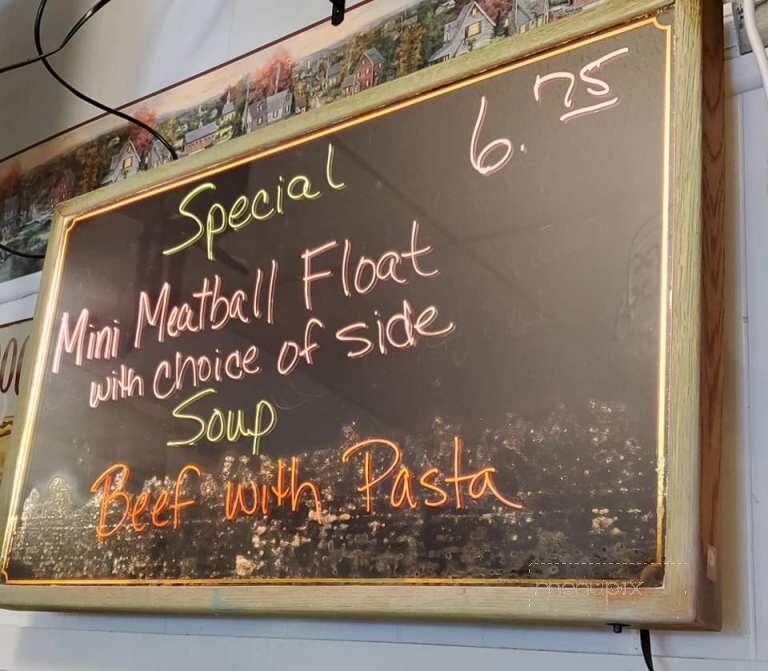 6.75
Special
Mini Meatball Float
with choice of side
Soup
Beef with Pasta
menupix